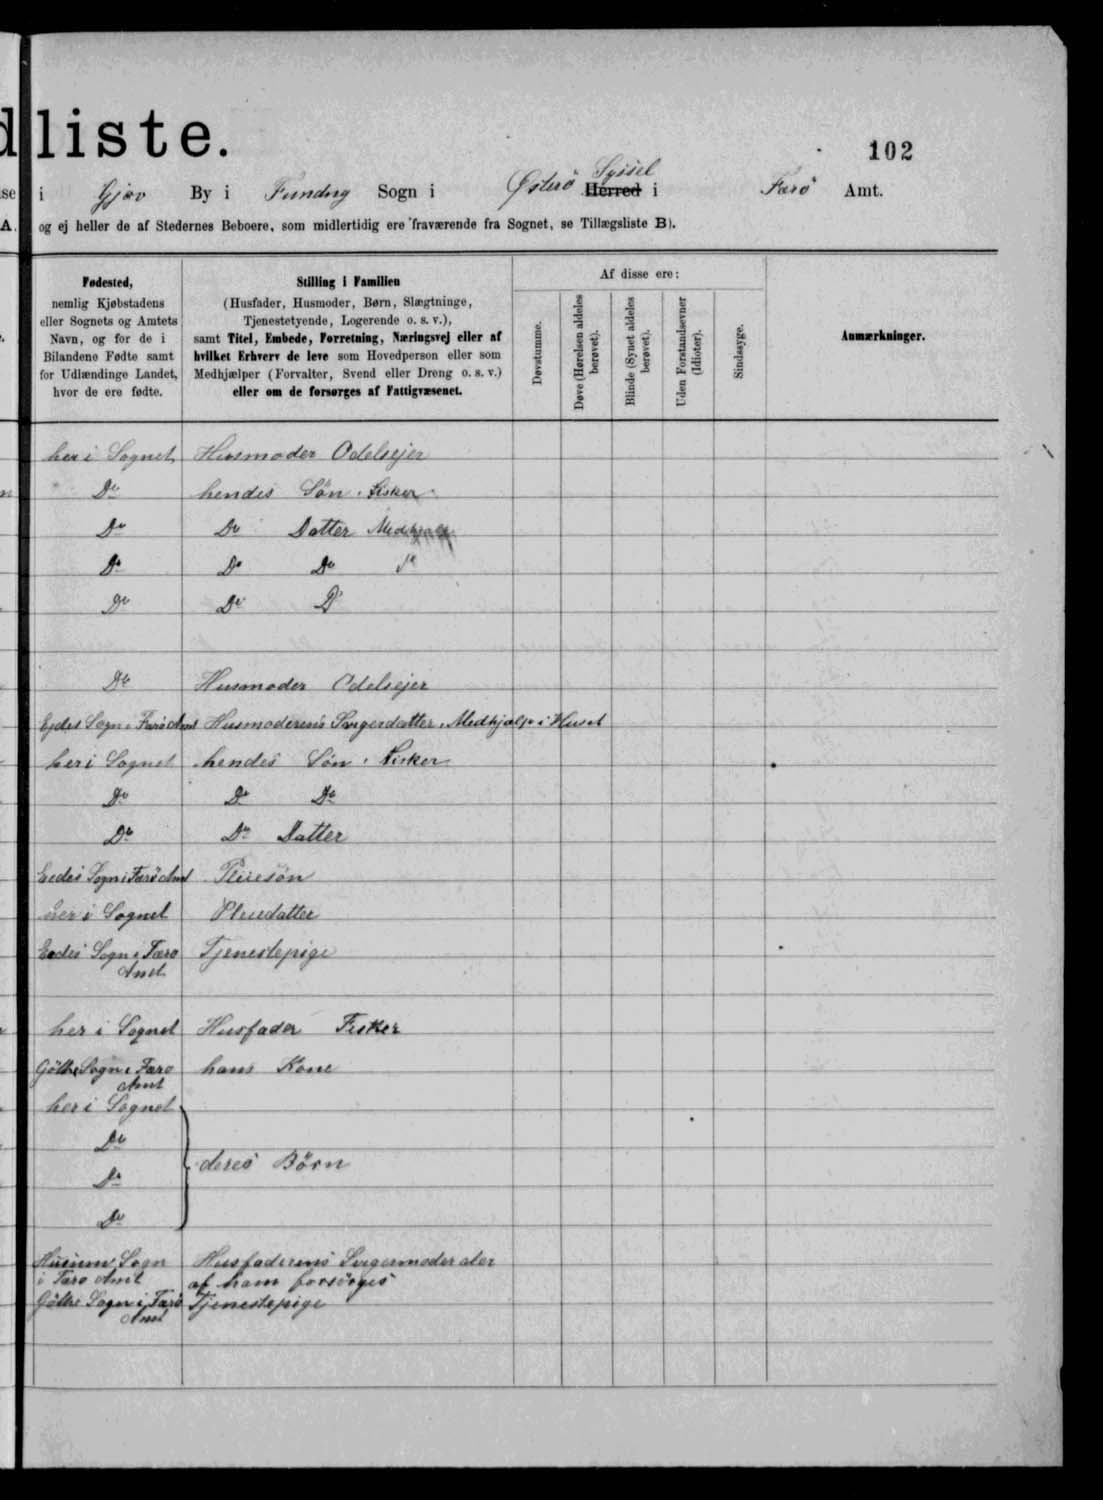 dliste.
102
i Gjov By i Funding Sogn i Østerö Herred Syssel i Færö Amt.
A. og ej heller de af Stedernes Beboere, som midlertidig ere fraværende fra Sognet, se Tillægsliste B).
Fødested,
nemlig Kjøbstadens
eller Sognets og Amtets
Navn, og for de i
Bilandene Fødte samt
for Udlændinge Landet,
hvor de ere fødte.
Stilling i Familien
(Husfader, Husmoder, Børn, Slægtninge,
Tjenestetyende, Logerende o. s. v.),
samt Titel, Embede, Forretning, Næringsvej eller af
hvilket Erhverv de leve som Hovedperson eller som
Medhjælper (Forvalter, Svend eller Dreng o. s. v.)
eller om de forsørges af Fattigvæsenet.
Af disse ere:
Døvstumme.
Døve (Hørelsen aldeles
berøvet).
Blinde (Synet aldeles
berøvet).
Uden Forstandsevner
(Idioter).
Sindssyge.
Anmærkninger.
her i Sognet Husmoder Odelsejer
Do hendes Sön. Fisker
Do Do Datter
Do Do Do
Do Do Do
Do Husmoder Odelsejer
Ejdes Sogn i Færö Amt Husmoderens Svigerdatter. Medhjælp i Huset
her i Sognet hendes Sön. Fisker
Do Do Do
Do Do Datter
Eedes Sogn i Færö Amt Pleiesön
her i Sognet Pleiedatter
Eedes Sogn i Færo
Amt Tjenestepige
her i Sognet Husfader Fisker
Göthe Sogn i Færo
Amt hans Kone
her i Sognet
Do
deres Börn
Do
Do
Sogn
i Færo Amt
Husfaderens Svigermoder
af ham forsörges
Göthe Sogn i Færö
Amt Tjenestepige